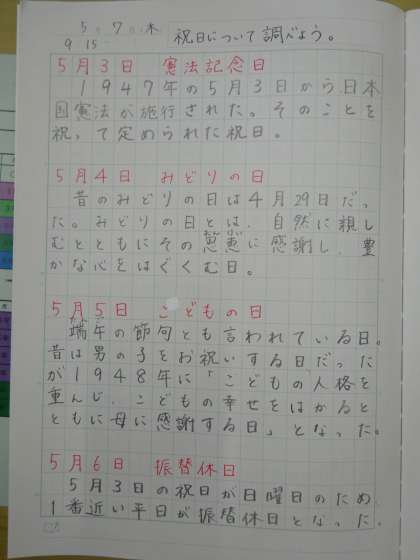 5. 7. 木
9 15
祝日について調べよう。
5月3日 憲法記念日
1947年の5月3日から日本
国憲法が施行された。そのことを
祝って定められた祝日。
5月4日 みどりの日
昔のみどりの日は4月29日だっ
た。みどりの日とは、自然に親し
むとともにその恩恵に感謝し、豊
かな心をはぐくむ日。
5月5日 こどもの日
端午の節句とも言われている日。
昔は男の子をお祝いする日だった
が1948年に「こどもの人格を
重んじ、こどもの幸せをはかると
ともに母に感謝する日」となった。
5月6日 振替休日
5月3日の祝日が日曜日のため
1番近い平日が振替休日となった。